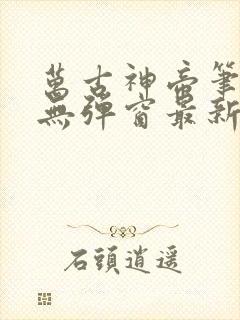 萬古神帝筆
無彈窗最新
石頭逍遥